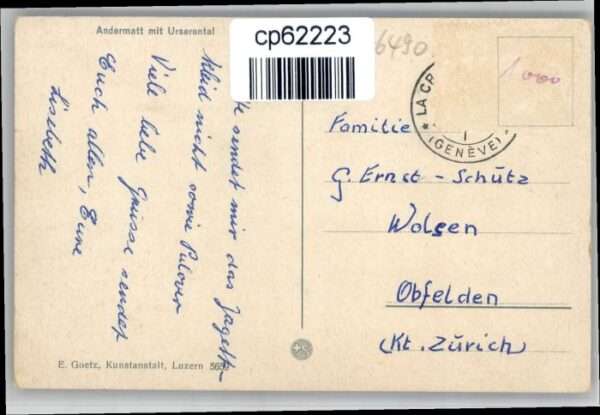 Andermatt mit Urserental
cp62223
6490
1000
sendet mir das
Kleid nicht sowie Pulover
Viele liebe Grüsse sendet
Euch allen, Eure
Lisebeth
LA CR
(GENÈVE)
Familie
G. Ernst - Schütz
Wolsen
Obfelden
(Kt. Zürich)
E. Goetz, Kunstanstalt, Luzern